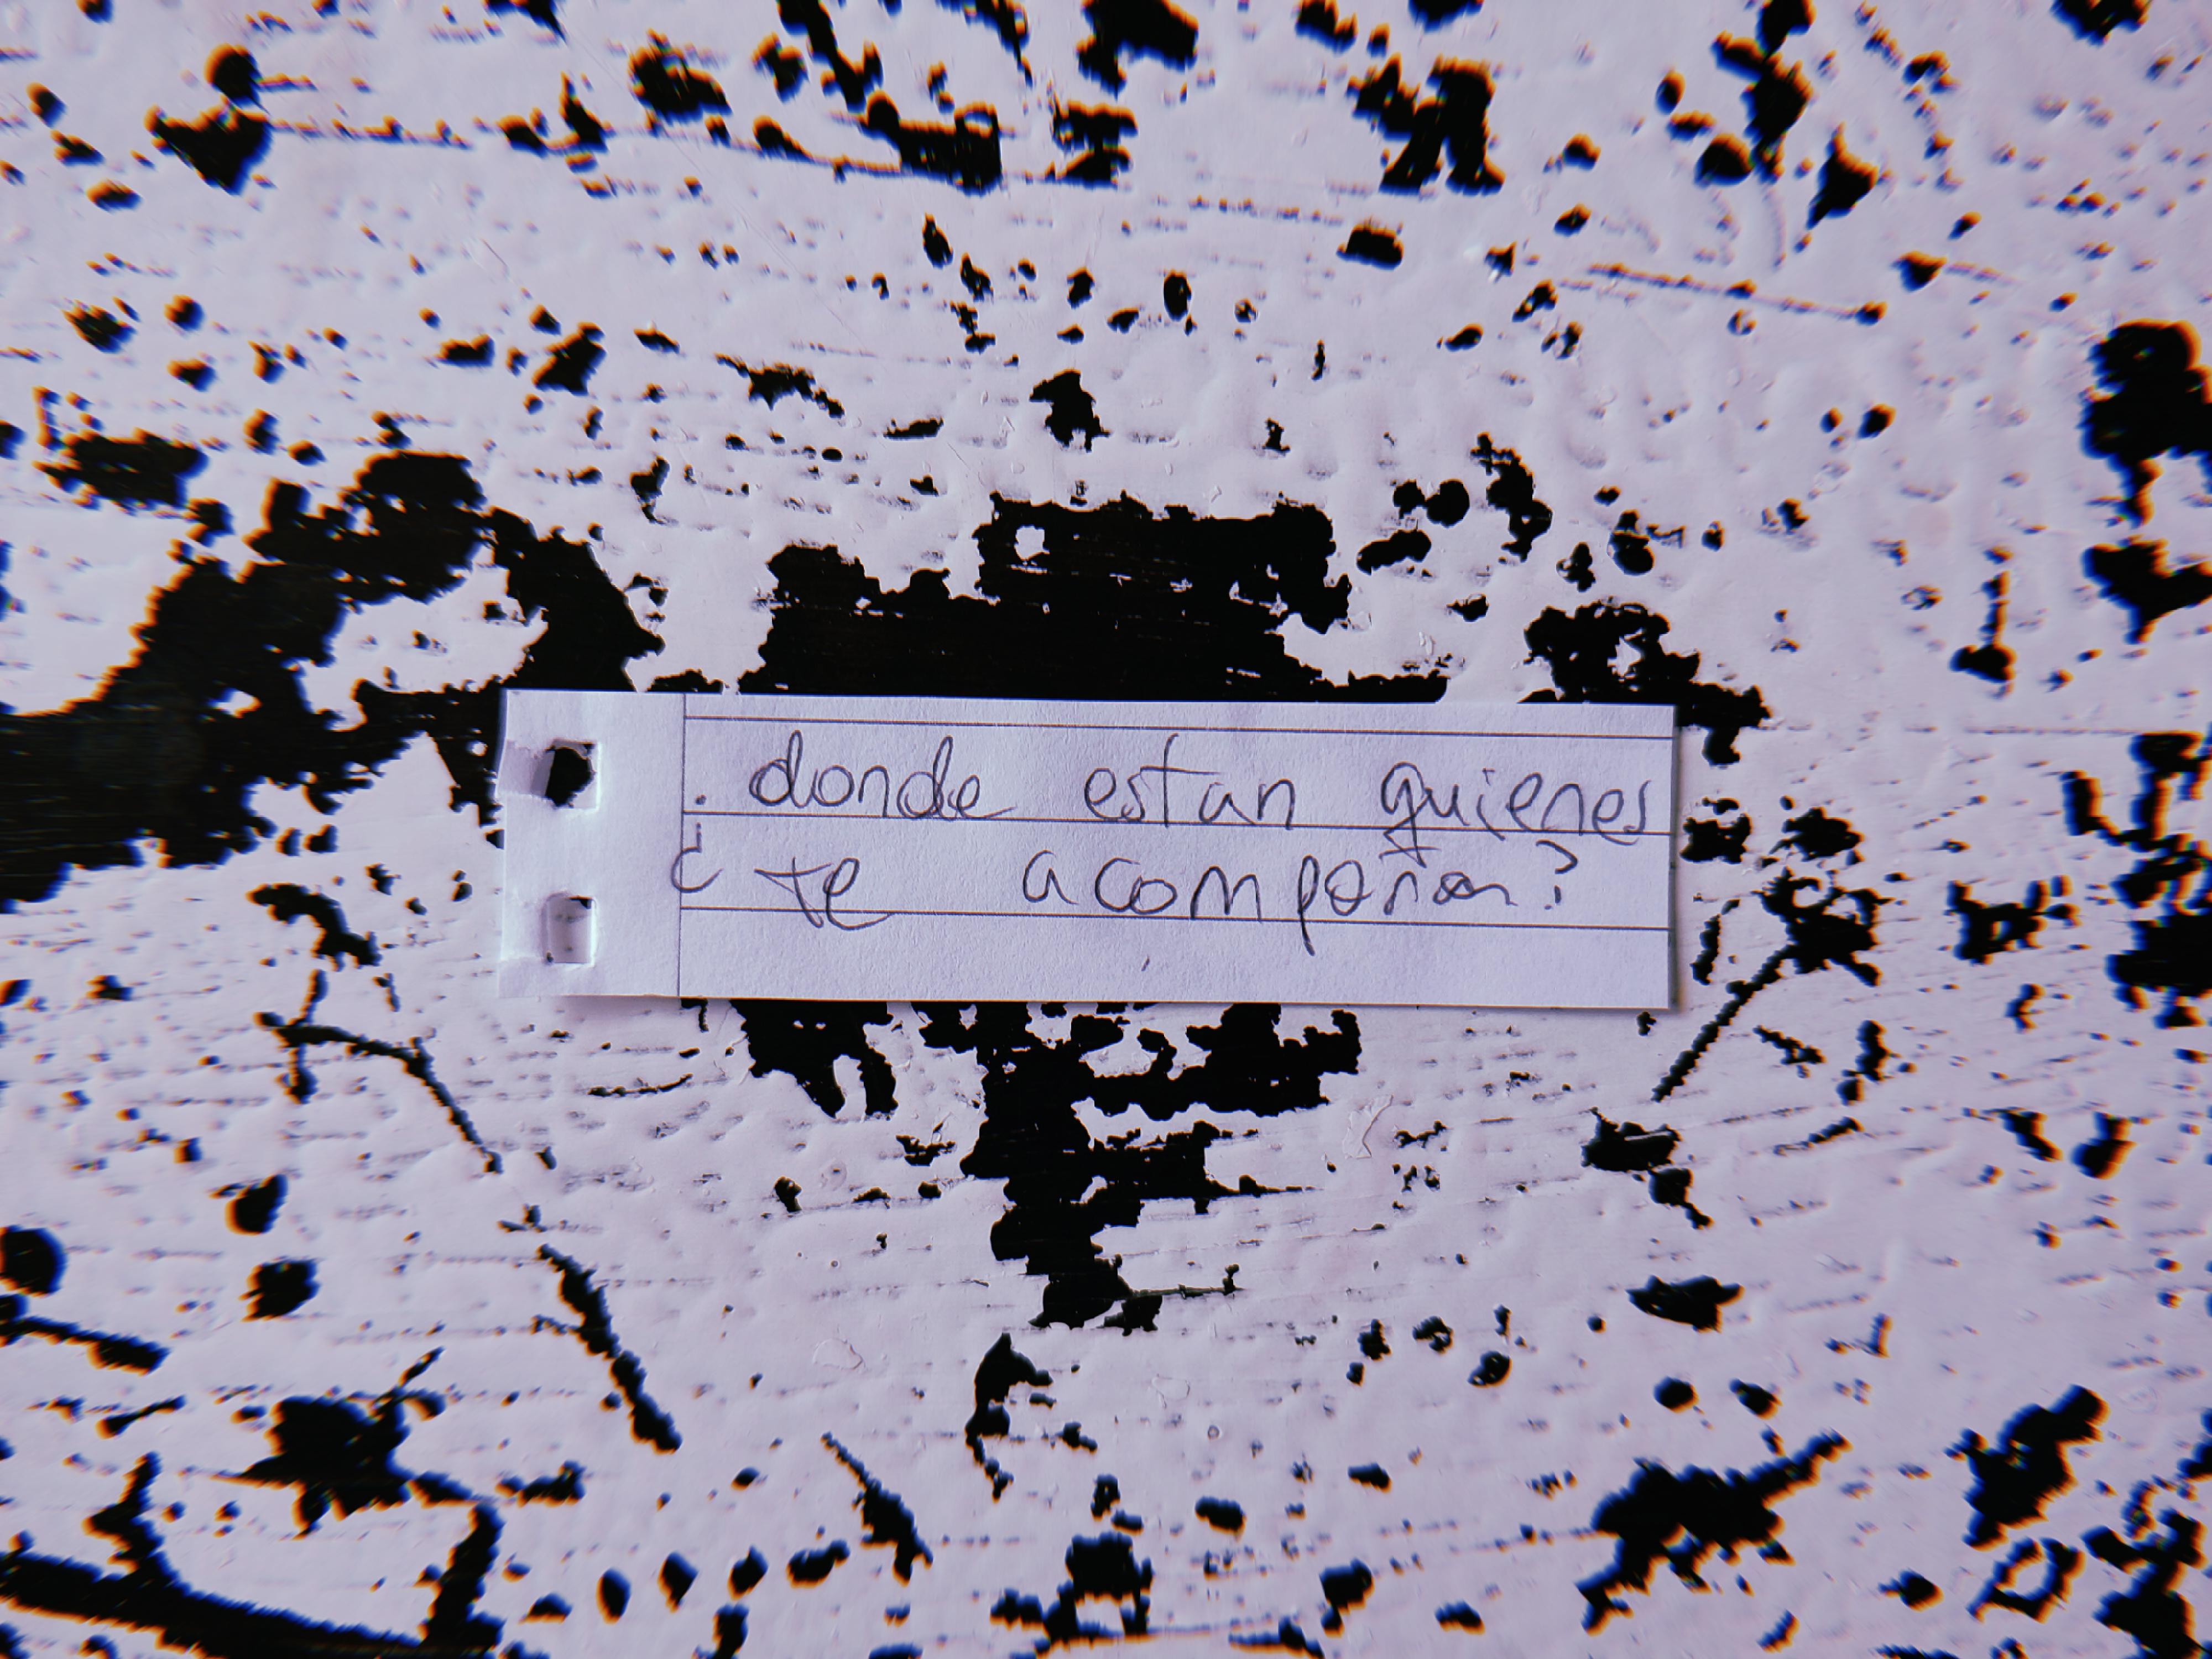 . donde estan quienes
¿ te acompañan?